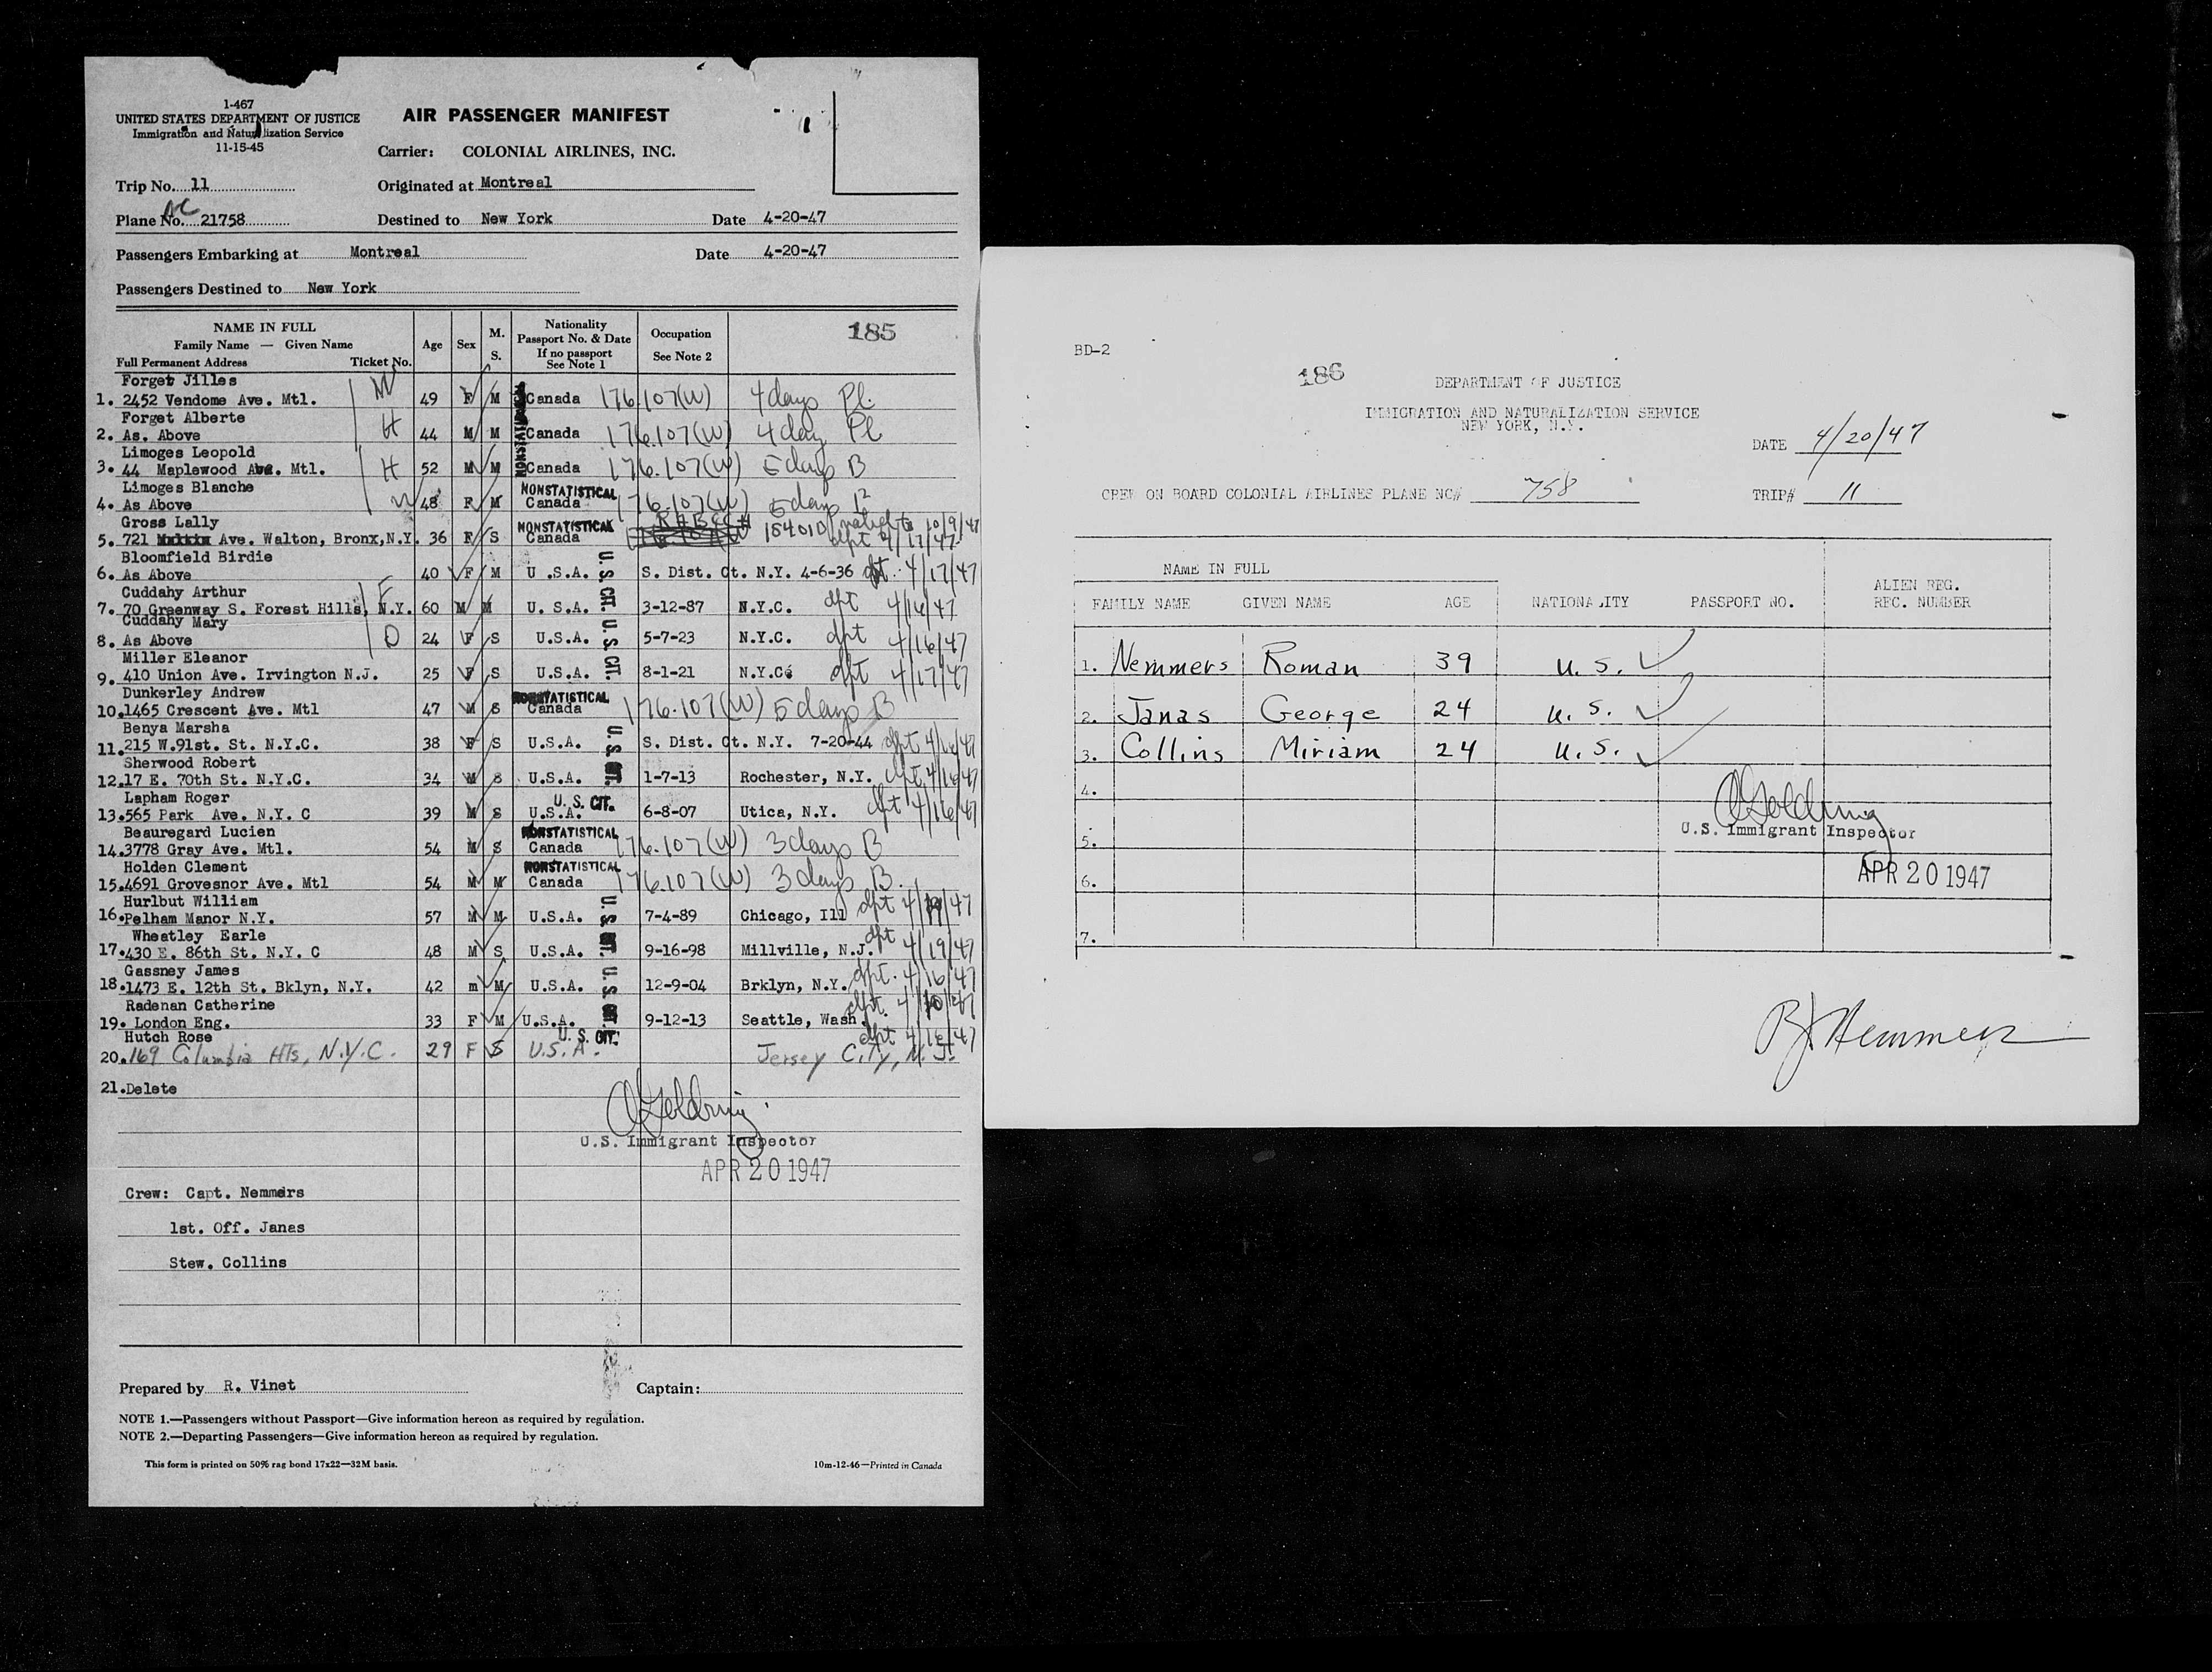 1-467
UNITED STATES DEPARTMENT OF JUSTICE
Immigration and Naturalization Service
11-15-45
AIR PASSENGER MANIFEST
Carrier: COLONIAL AIRLINES, INC.
Trip No. 11
Originated at Montreal
Plane No. 21758
Destined to New York Date 4-20-47
Passengers Embarking at Montreal Date 4-20-47
Passengers Destined to New York
NAME IN FULL
Family Name — Given Name
Full Permanent Address Ticket No.
Age
Sex
M.
S.
Nationality
Passport No. & Date
If no passport
See Note 1
Occupation
See Note 2
185
Forget Jilles
1. 2452 Vendome Ave. Mtl. W 49 F M Canada 176.107(W) 4 days Pl.
Forget Alberte
2. As. Above H 44 M M Canada 176.107(W) 4 day Pl
Limoges Leopold
3. 44 Maplewood Ave. Mtl. H 52 M M Canada 176.107(W) 5 days B
Limoges Blanche
NONSTATISTICAL
4. As Above W 48 F M Canada 176.107(W) 5 days
Gross Lally
NONSTATISTICAL
5. 721 Ave. Walton, Bronx, N.Y. 36 F S Canada 154010 valid to 10/9/47 dpt 4/17/47
Bloomfield Birdie
6. As Above 40 F M U.S.A. U.S. CIT. S. Dist. Ct. N.Y. 4-6-36 dpt. 4/17/47
Cuddahy Arthur
7. 70 Greenway S. Forest Hills, N.Y. F 60 M M U. S.A. 3-12-87 N.Y.C. dpt 4/16/47
Cuddahy Mary
8. As Above D 24 F S U.S.A. U.S. CIT. 5-7-23 N.Y.C. dpt 4/16/47
Miller Eleanor
9. 410 Union Ave. Irvington N.J. 25 F S U.S.A. 8-1-21 N.Y.C. dpt 4/17/47
Dunkerley Andrew
NONSTATISTICAL
10. 1465 Crescent Ave. Mtl 47 M S Canada 176.107(W) 5 days B
Benya Marsha
11. 215 W.91st. St. N.Y.C. 38 F S U.S.A. U.S. CIT. S. Dist. Ct. N.Y. 7-20-44 dpt
Sherwood Robert
12. 17 E. 70th St. N.Y.C. 34 M S U.S.A. 1-7-13 Rochester, N.Y. dpt 4/16/47
Lapham Roger
U. S. CIT.
13. 565 Park Ave. N.Y. C 39 M S U.S.A. 6-8-07 Utica, N.Y. dpt 4/16/47
Beauregard Lucien
NONSTATISTICAL
14. 3778 Gray Ave. Mtl. 54 M S Canada 176.107(W) 3 days B
Holden Clement
NONSTATISTICAL
15. 4691 Grovesnor Ave. Mtl 54 M M Canada 176.107(W) 3 days B.
Hurlbut William
16. Pelham Manor N.Y. 57 M M U.S.A. U.S. CIT. 7-4-89 Chicago, Ill dpt
Wheatley Earle
17. 430 E. 86th St. N.Y. C 48 M S U.S.A. 9-16-98 Millville, N.J. dpt 4/19/47
Gassney James
18. 1473 E. 12th St. Bklyn, N.Y. 42 m M U.S.A. U.S. CIT. 12-9-04 Brklyn, N.Y. dpt. 4/16/47
Radenan Catherine
19. London Eng. 33 F M U.S.A. 9-12-13 Seattle, Wash. dpt.
Hutch Rose
U. S. CIT.
dpt 4/16/47
20. 169 Columbia Hts, N.Y.C. 29 F S U.S.A. Jersey City, N.J.
21. Delete
U.S. Immigrant Inspector
APR 20 1947
Crew: Capt. Nemmers
1st. Off. Janas
Stew. Collins
Prepared by R. Vinet
Captain:
NOTE 1.—Passengers without Passport—Give information hereon as required by regulation.
NOTE 2.—Departing Passengers—Give information hereon as required by regulation.
This form is printed on 50% rag bond 17x22—32M basis.
10m-12-46—Printed in Canada
BD-2
186
DEPARTMENT OF JUSTICE
IMMIGRATION AND NATURALIZATION SERVICE
NEW YORK, N.Y.
DATE 4/20/47
CREW ON BOARD COLONIAL AIRLINES PLANE NO# 758
TRIP# 11
NAME IN FULL
ALIEN REG.
FAMILY NAME GIVEN NAME AGE NATIONALITY PASSPORT NO. REC. NUMBER
1. Nemmers Roman 39 U.S.
2. Janas George 24 U.S.
3. Collins Miriam 24 U.S.
4.
U.S. Immigrant Inspector
5.
6.
APR 20 1947
7.
RJ Nemmers